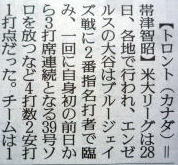 【トロント(カナダ)=
帯津智昭】米大リーグは28
日、各地で行われ、エンゼ
ルスの大谷はブルージェイ
ズ戦に2番指名打者で臨
み、一回に自身初の前日か
ら3打席連続となる39号ソ
ロを放つなど4打数2安打
1打点だった。チームは